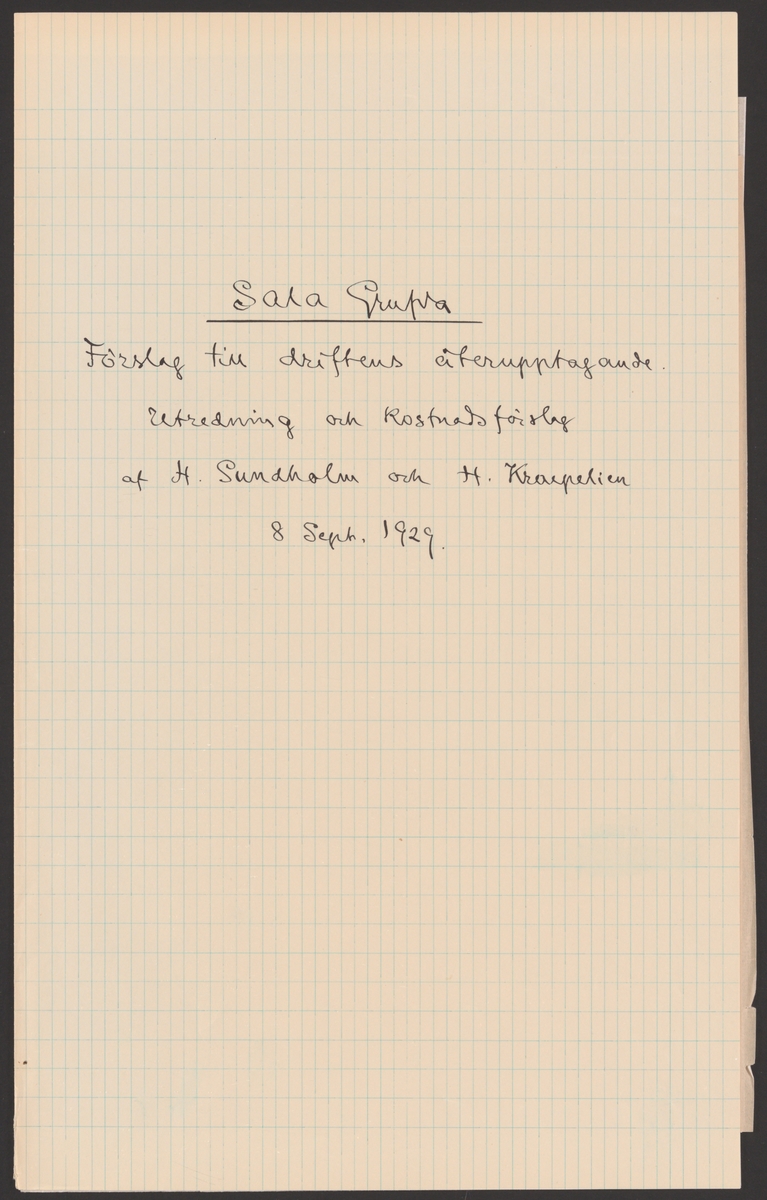 Sala Grufva
Förslag till driftens återupptagande.
Utredning och kostnadsförslag
af H. Sundholm och H. Kraepelien
8 Sept. 1929.